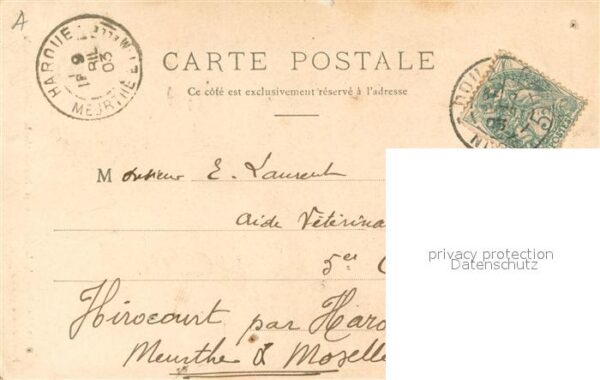 A
HAROUE
MEURTHE ET MLLE
03
CARTE POSTALE
Ce côté est exclusivement réservé à l'adresse
Monsieur E. Laurent
Aide Vétérina
5er C
Hirocourt par Haro
Meurthe & Moselle
privacy protection
Datenschutz